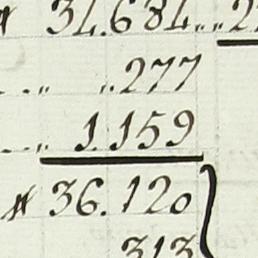 # 34.684....2
.... ..277
.... 1.159
# 36.120
313